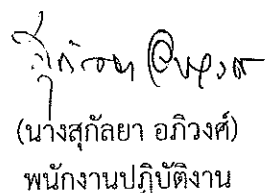 (นางสุกัลยา อภิวงศ์)
พนักงานปฏิบัติงาน